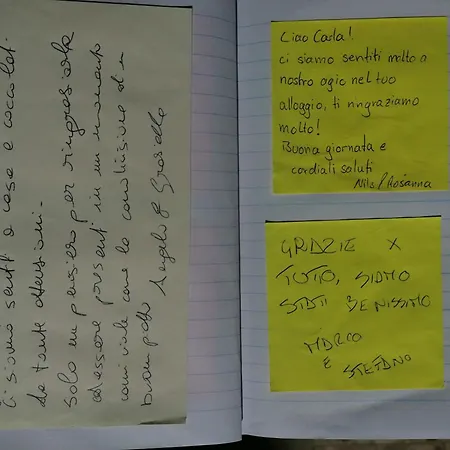 Ci siamo sentiti a casa e coccolati
da tante attenzioni.
Solo un pensiero per ringraziarla
ed essere presenti in un momento
conviviale come la condivisione di un
buon
Angelo &
Ciao Carla!
ci siamo sentiti molto a
nostro agio nel tuo
alloggio, ti ringraziamo
molto!
Buona giornata e
cordiali saluti
Nils / Rosanna
GRAZIE X
TUTTO, SIAMO
STATI BENISSIMO
MARCO
E
STEFANO